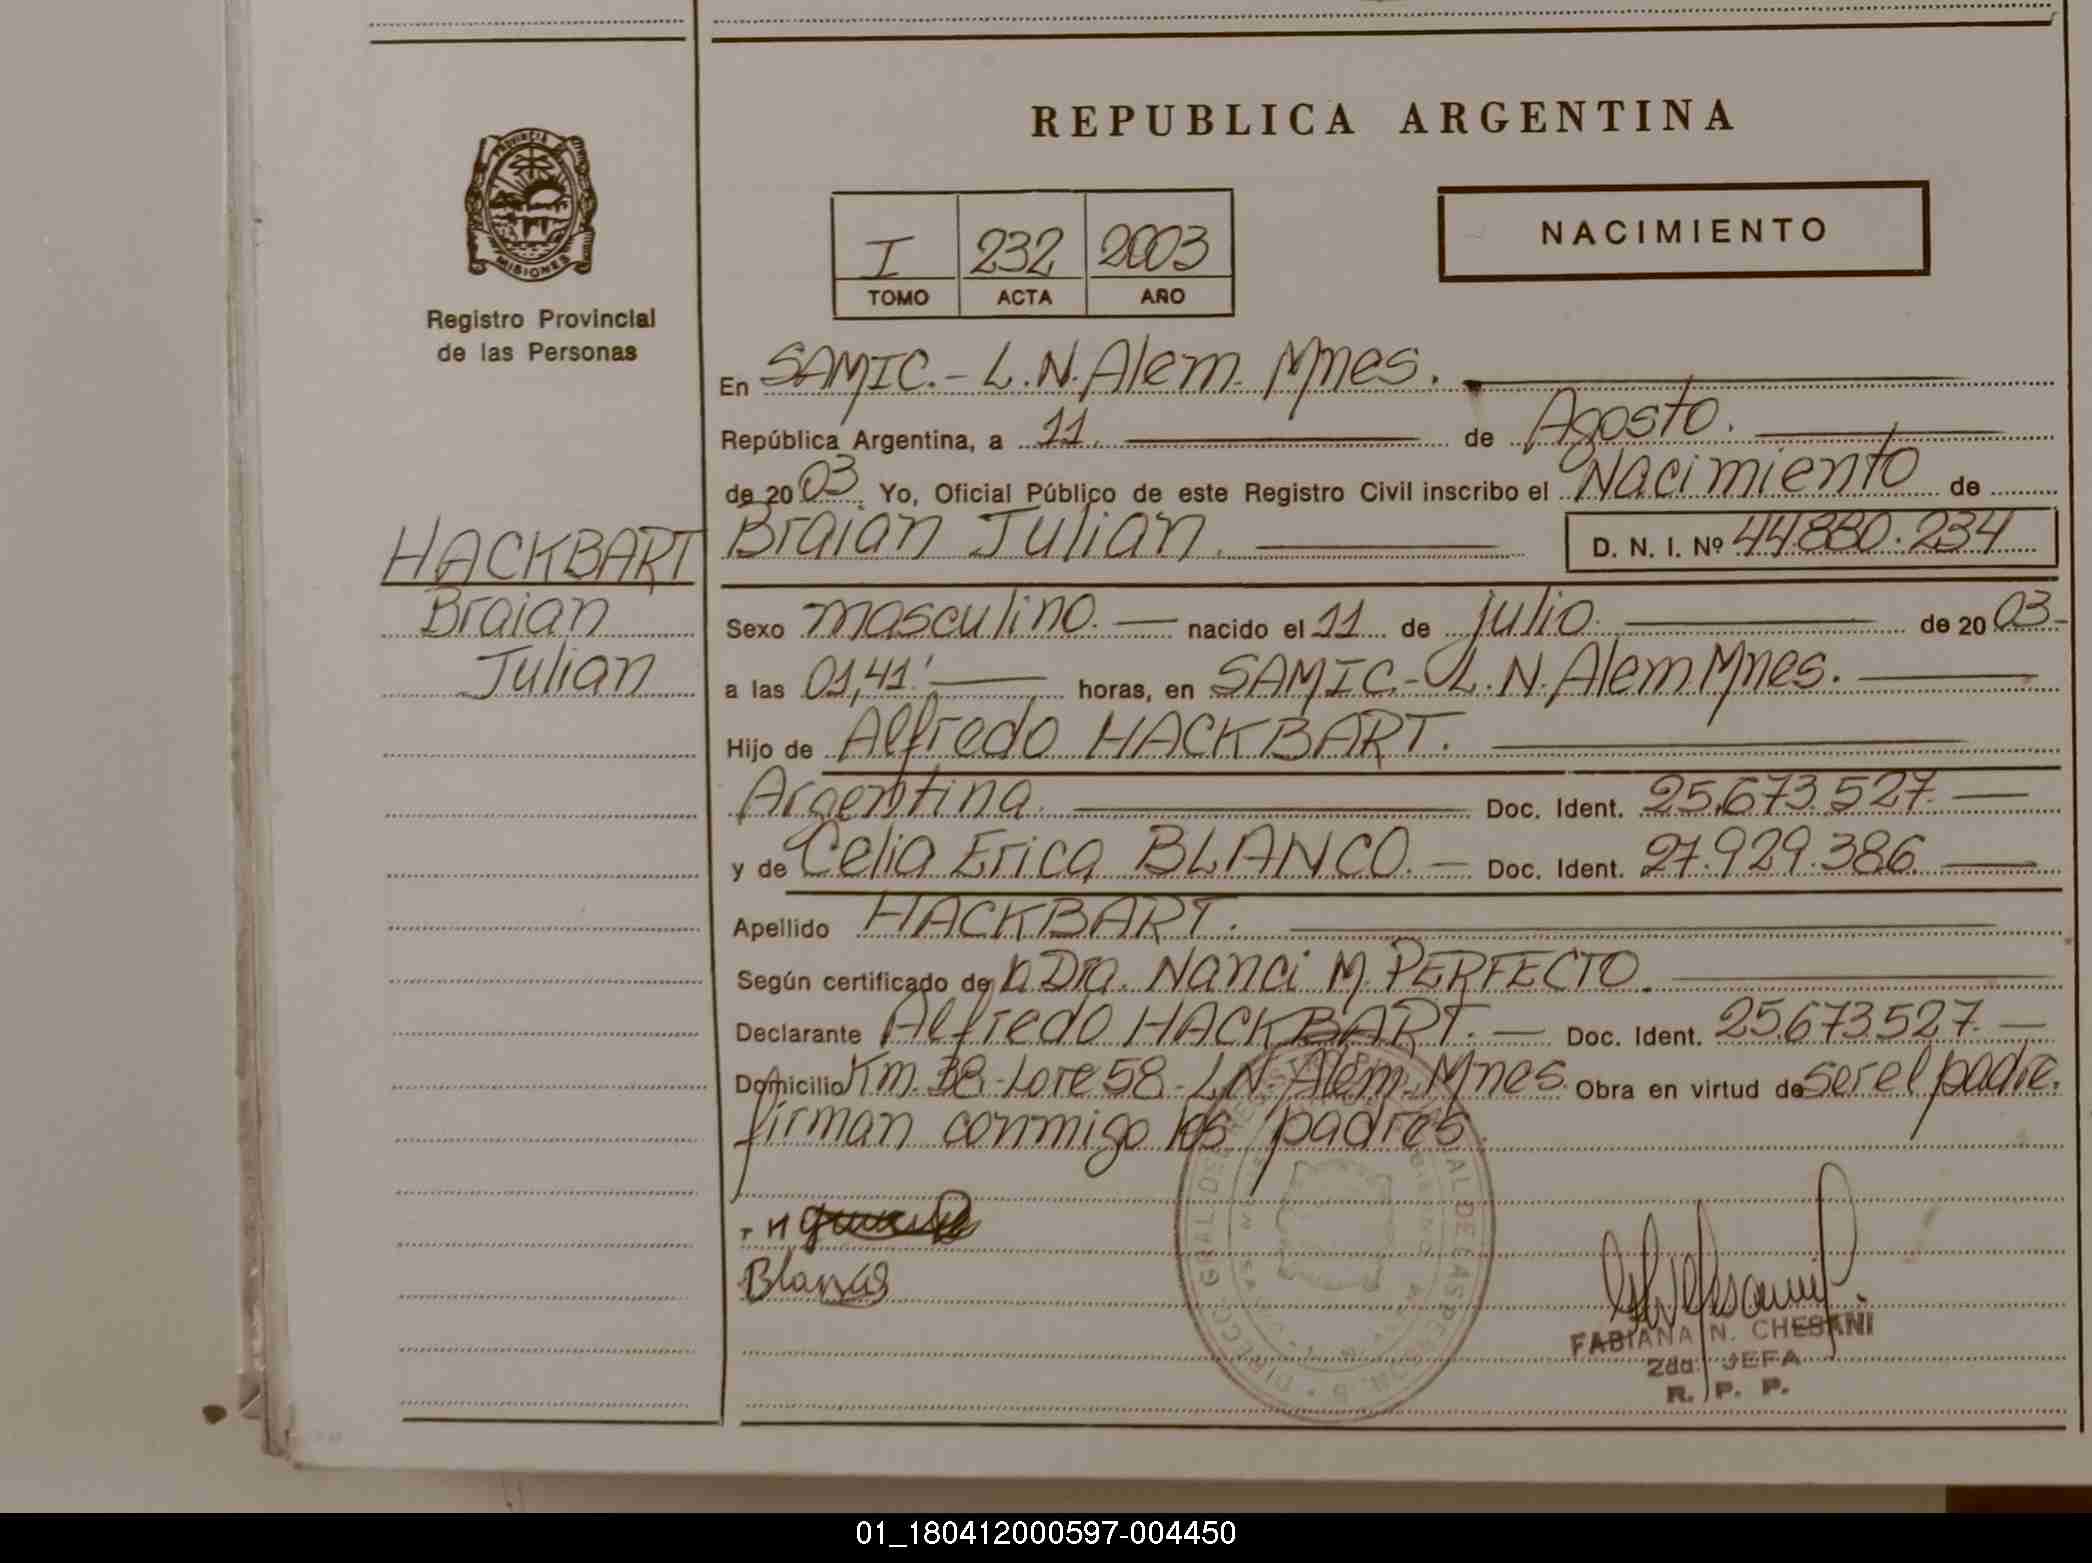 REPUBLICA ARGENTINA
PROVINCIA DE
MISIONES
Registro Provincial
de las Personas
I 232 2003
TOMO ACTA AÑO
NACIMIENTO
En SAMIC.- L.N. Alem. Mnes.
República Argentina, a 11. de Agosto.
de 2003. Yo, Oficial Público de este Registro Civil inscribo el Nacimiento de
HACKBART
Braian
Julian
Braian Julian. D. N. I. Nº 44.880.234
Sexo masculino. nacido el 11 de julio. de 2003.-
a las 01,41' horas, en SAMIC.- L.N. Alem Mnes.
Hijo de Alfredo HACKBART.
Argentina. Doc. Ident. 25.673.527.
y de Celia Erica BLANCO. Doc. Ident. 27.929.386.
Apellido HACKBART.
Según certificado de Dra. Nanci M. PERFECTO.
Declarante Alfredo HACKBART. Doc. Ident. 25.673.527.
Domicilio Km. 38 - Lote 58 - L.N. Alem. Mnes. Obra en virtud de ser el padre.
firman conmigo los padres.
Blanco
FABIANA N. CHESANI
2da. JEFA
R. P. P.
01_180412000597-004450